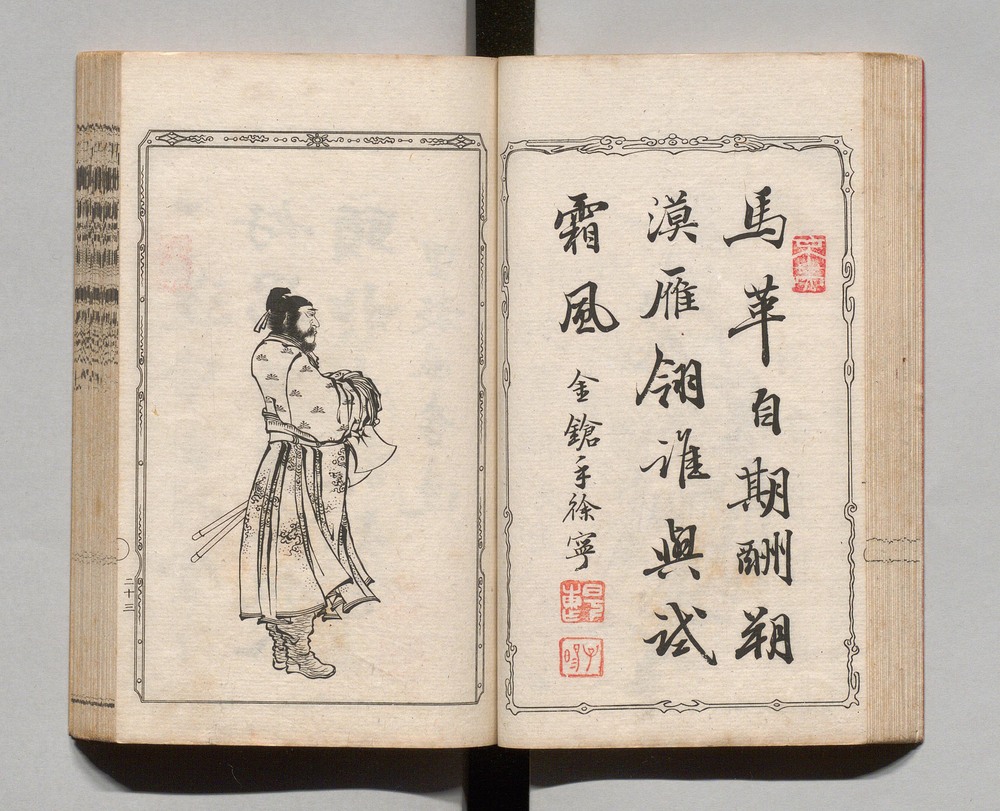 馬革自期酬朔
漠雁翎誰與試
霜風
金鎗手徐寧
二十三